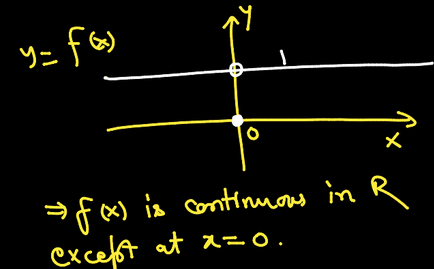 y
y = f(x)
1
0
x
⇒ f(x) is continuous in R
except at x = 0.